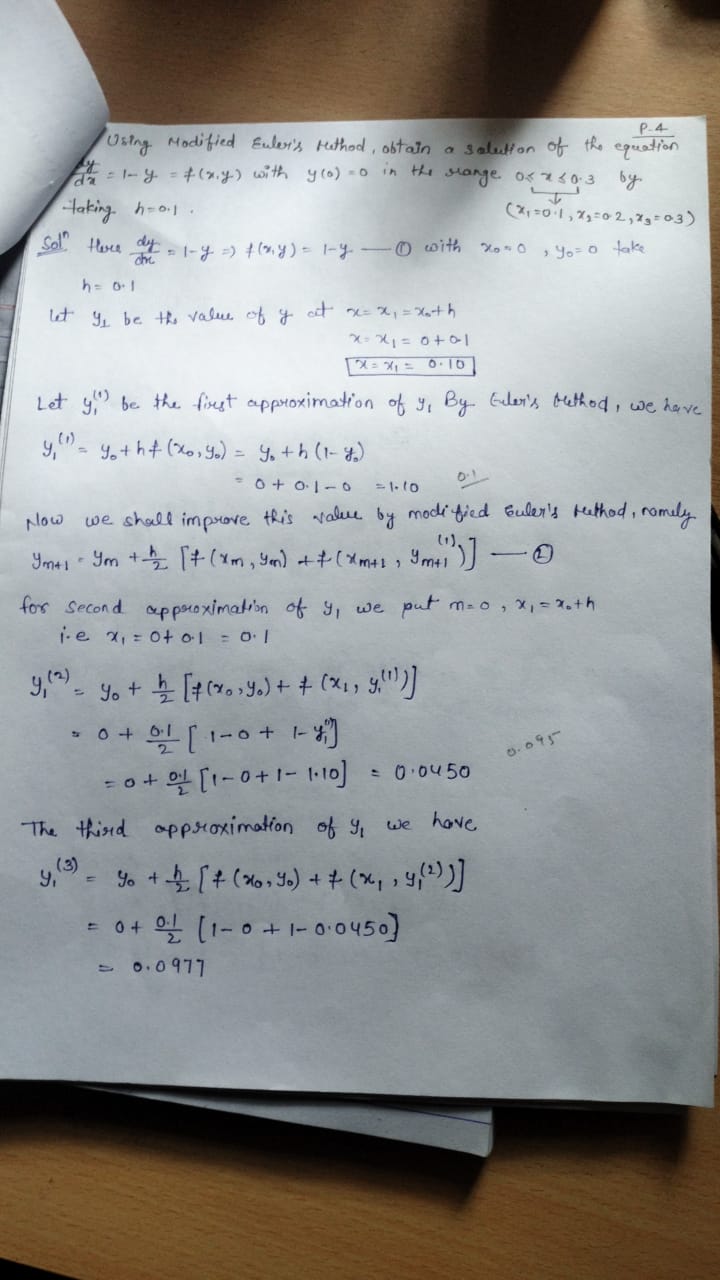 P-4
Using Modified Euler's Method, obtain a solution of the equation
dy/dx = 1-y = f(x,y) with y(0) = 0 in the range 0≤x≤0.3 by
taking h=0.1. (x₁=0.1, x₂=0.2, x₃=0.3)
Solⁿ Here dy/dx = 1-y => f(x,y) = 1-y — ① with x₀=0, y₀=0 take
h= 0.1
Let y₁ be the value of y at x= x₁ = x₀+h
x= x₁ = 0+0.1
x= x₁ = 0.10
Let y₁⁽¹⁾ be the first approximation of y₁ By Euler's Method, we have
y₁⁽¹⁾ = y₀+hf(x₀,y₀) = y₀+h(1-y₀)
= 0+0.1-0 =1.10 0.1
Now we shall improve this value by modified Euler's Method, namely
yₘ₊₁ = yₘ + h/2 [f(xₘ, yₘ) + f(xₘ₊₁, yₘ₊₁⁽¹⁾)] — ②
for second approximation of y₁ we put m=0, x₁=x₀+h
i.e x₁ = 0+0.1 = 0.1
y₁⁽²⁾ = y₀ + h/2 [f(x₀,y₀) + f(x₁, y₁⁽¹⁾)]
= 0 + 0.1/2 [1-0+ 1-y₁⁽¹⁾]
0.095
= 0+ 0.1/2 [1-0+1-1.10] = 0.0450
The third approximation of y₁ we have
y₁⁽³⁾ = y₀ + h/2 [f(x₀,y₀) + f(x₁, y₁⁽²⁾)]
= 0+ 0.1/2 [1-0+1-0.0450]
= 0.0977